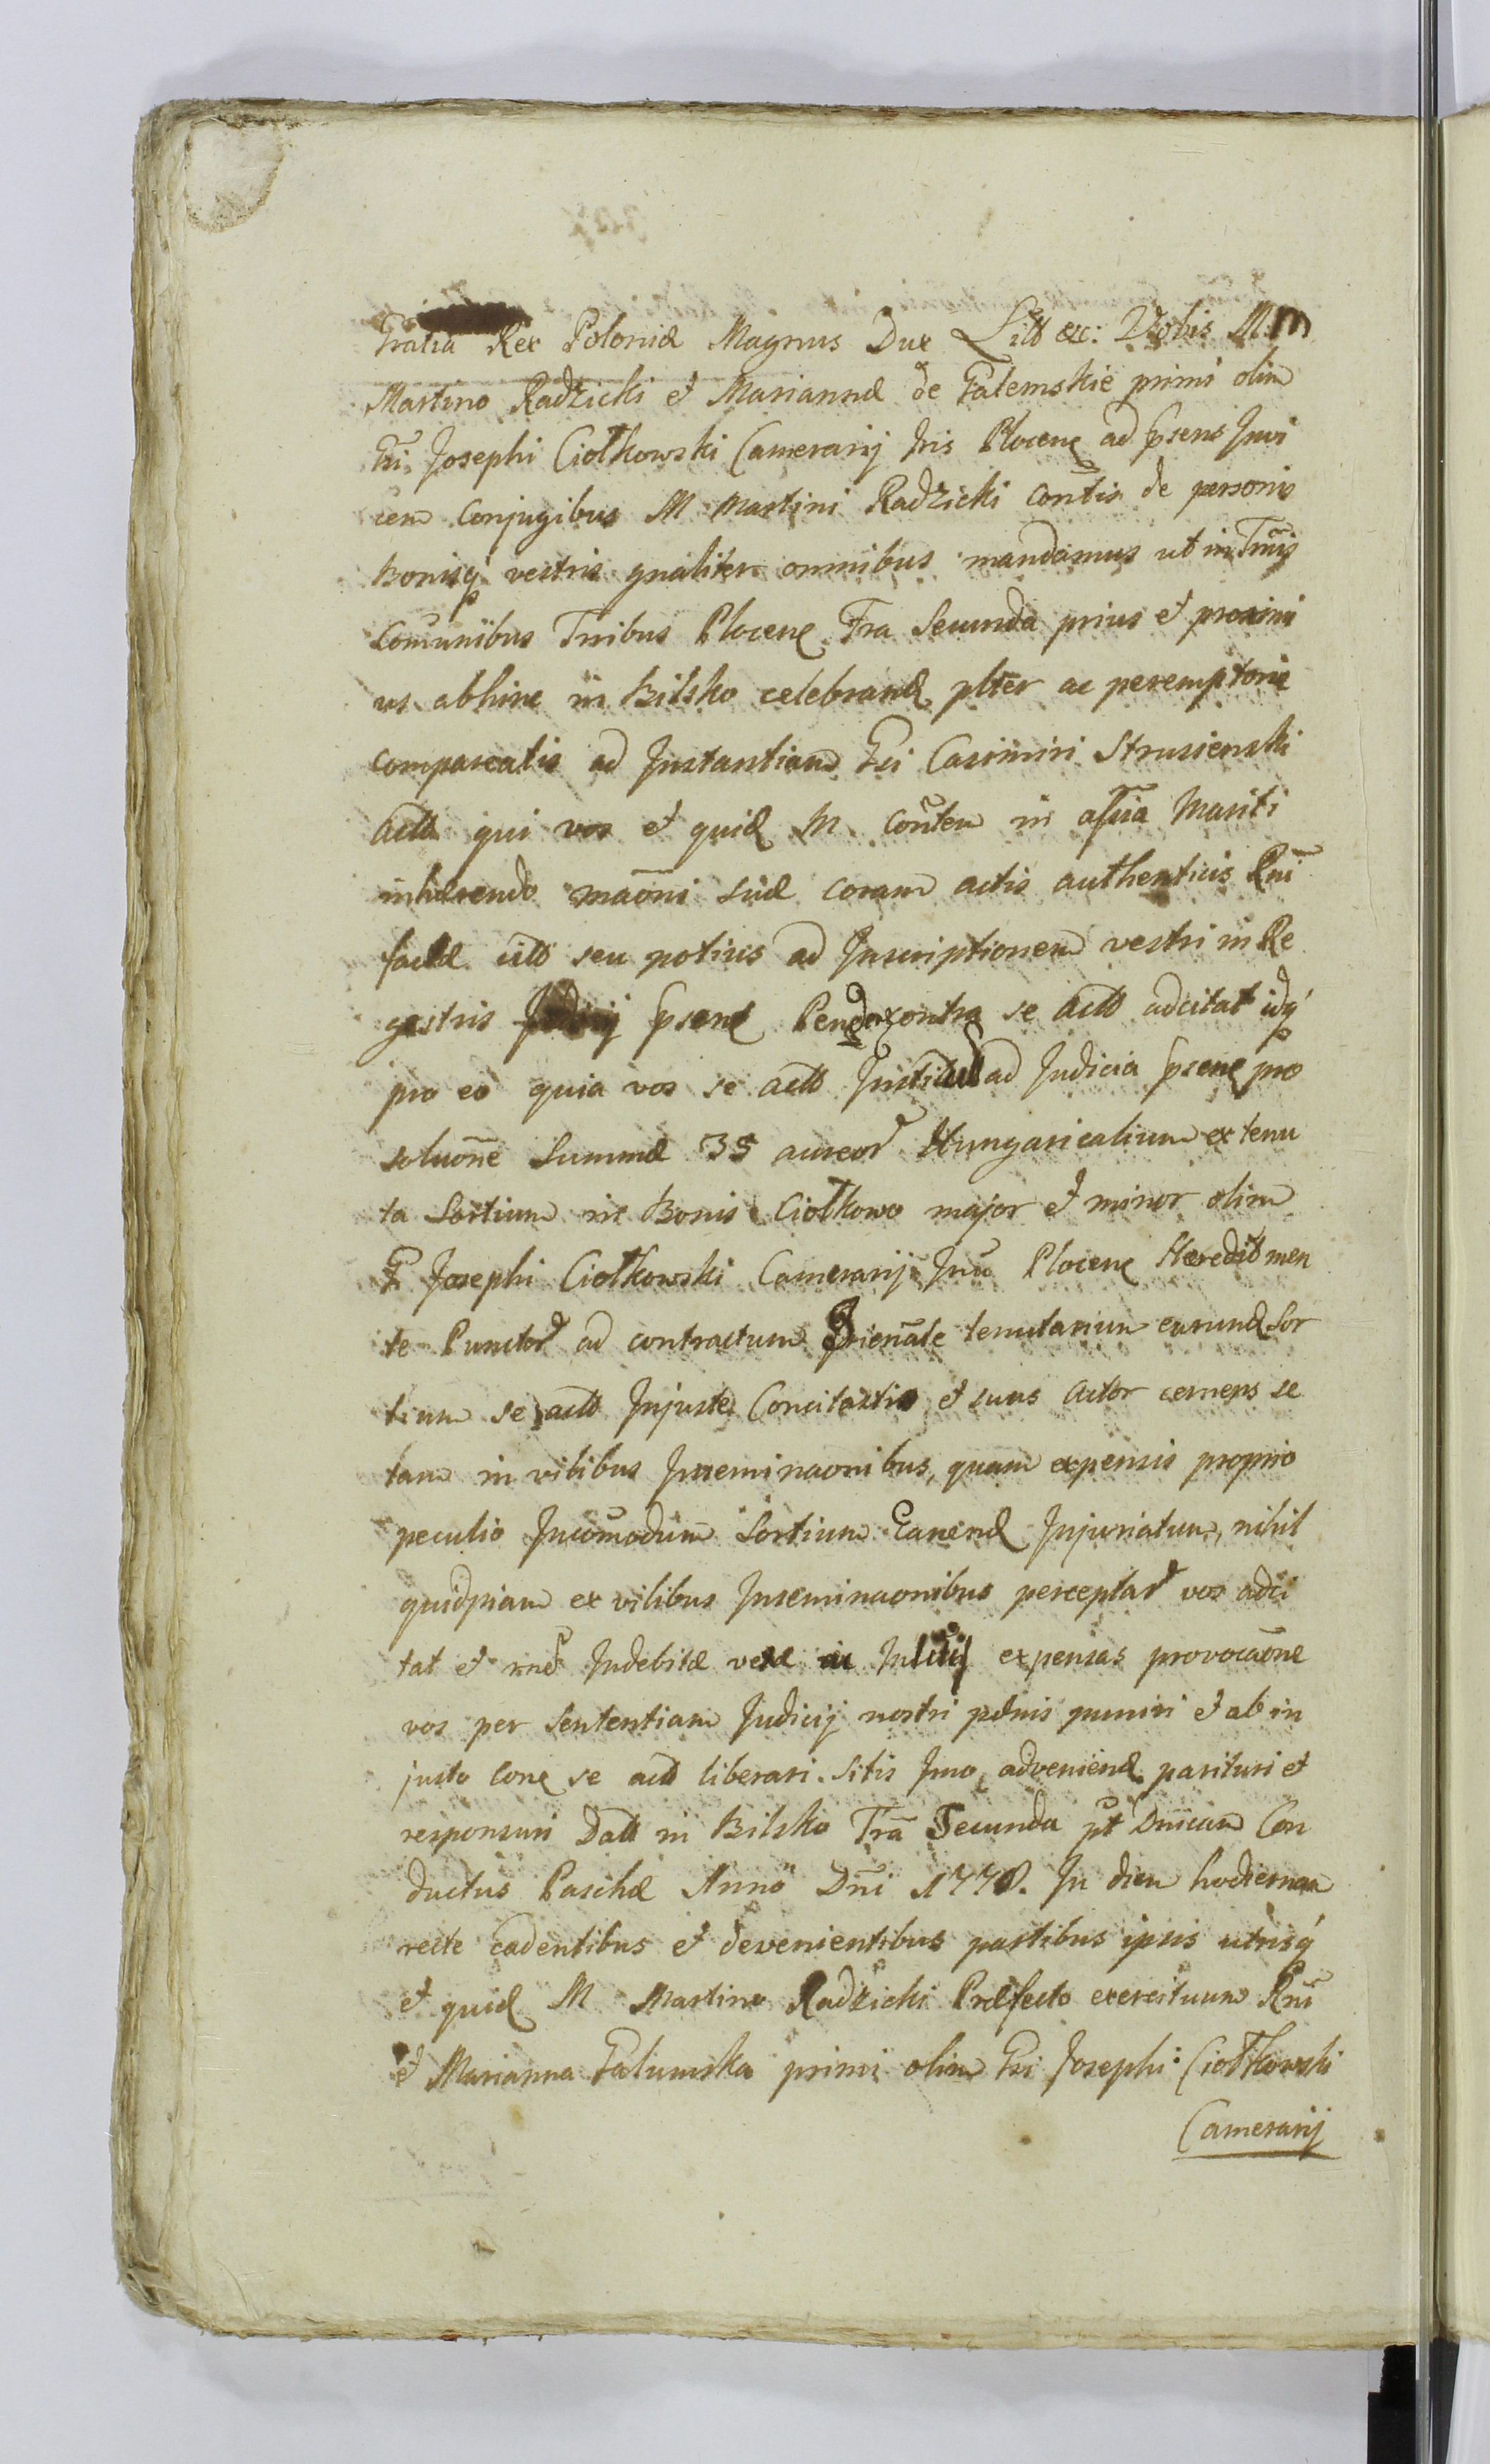 Gratia Rex Poloniæ Magnus Dux Litt etc: Vobis M.M
Martino Radzicki et Mariannæ de Falemskie primi olim
Gsi Josephi Ciołkowski Camerarij Tris Plocen ad psens Invi
cem Conjugibus M Martini Radzicki contis de personis
Bonisq vestris gnaliter omnibus mandamus ut in Tmis
Comunibus Tribus Plocen Fra Secunda prius et proximi
us abhinc in Bilsko celebrand plter ac peremptorie
compareatis ad Instantiam Gsi Casimiri Strusienski
Actt qui vos et quid M. Conten in assia Mariti
inhærendo maoni suæ coram actis authenticis Rni
factæ citt seu potius ad Inscriptionem vestri in Re
gestris psent Pend contra se Actt adcitat idq
pro eo quia vos se actt ad Judicia psene pro
soluone Summæ 35 aureor Hungaricalium ex tenu
ta Sortium in Bonis Ciołkowo major et minor olim
G Josephi Ciołkowski Camerarij Plocen Heredit men
te Punctor ad contractum Trienale tenutarium earund Sor
tium se actt Injuste Concitastis et suus Actor cernens se
tam in vilibus Inseminaonibus, quam expensis proprio
peculio Incomodum Sortium Injuriatum, nihil
quidpiam ex vilibus Inseminaonibus perceptar vos adci
tat et Indebitæ vexæ expensas provocaone
vos per Sententiam Judicij nostri pænis puniri et ab in
justo Cone se actt liberari. Sitis Imo adveniend parituri et
responsuri Datt in Bilsko Fra Secunda pt Dnicam Con
ductus Paschæ Anno Dni 1778. In diem hodiernam
recte cadentibus et devenientibus partibus ipsis utrisq
et quid M Martino Radzicki Præfecto exercituum Rni
et Marianna Falumska primi olim Gsi Josephi Ciołkowski
Camerarij